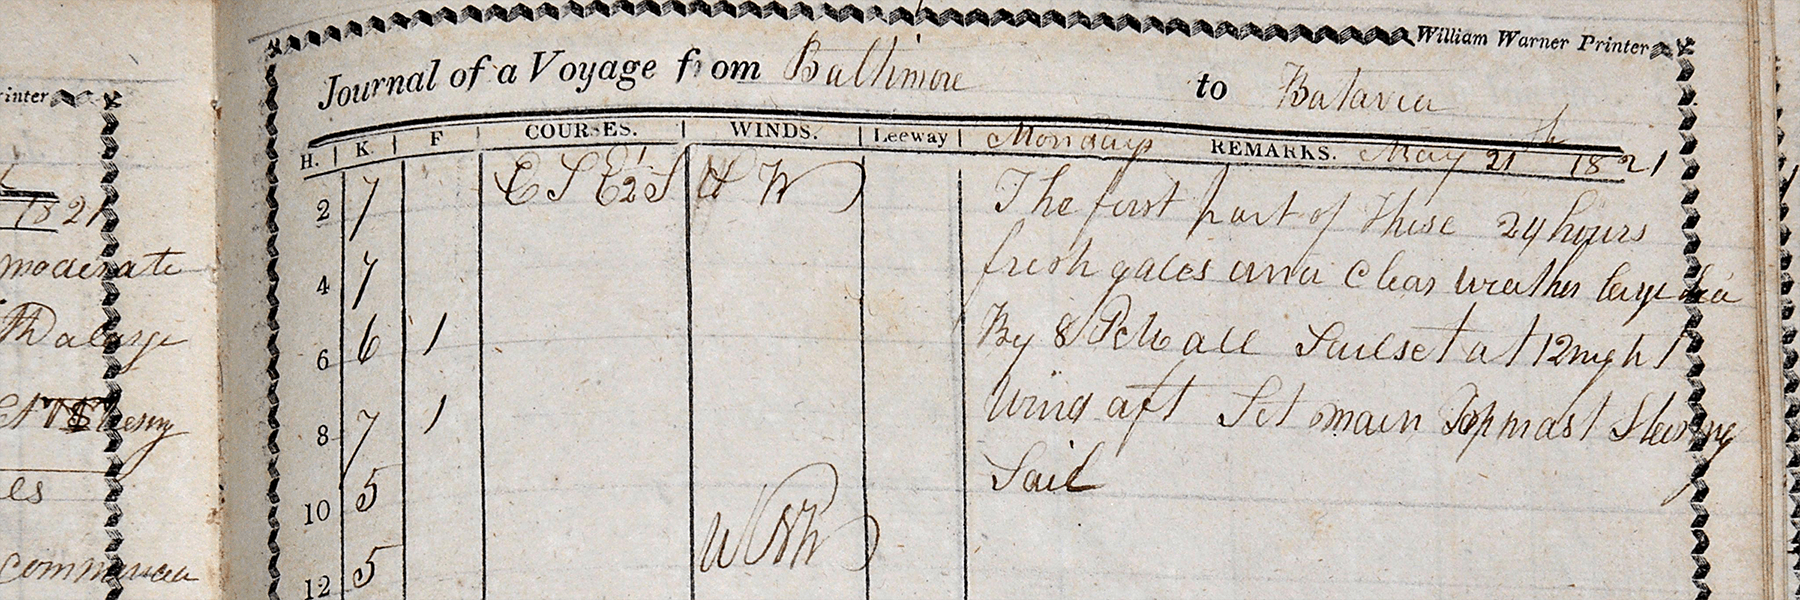 inter
1821
moderate
a large
es
William Warner Printer
Journal of a Voyage from Baltimore to Batavia
H. K. F COURSES. WINDS. Leeway Mondays REMARKS. May 21th 1821
2 7 E S E 1/2 S W
4 7
6 6 1
8 7 1
10 5
12 5
The first part of these 24 hours
fresh gales and Clear weather large sea
By 8 all Sail set at 12 night
Wind aft Set main Topmast
Sail